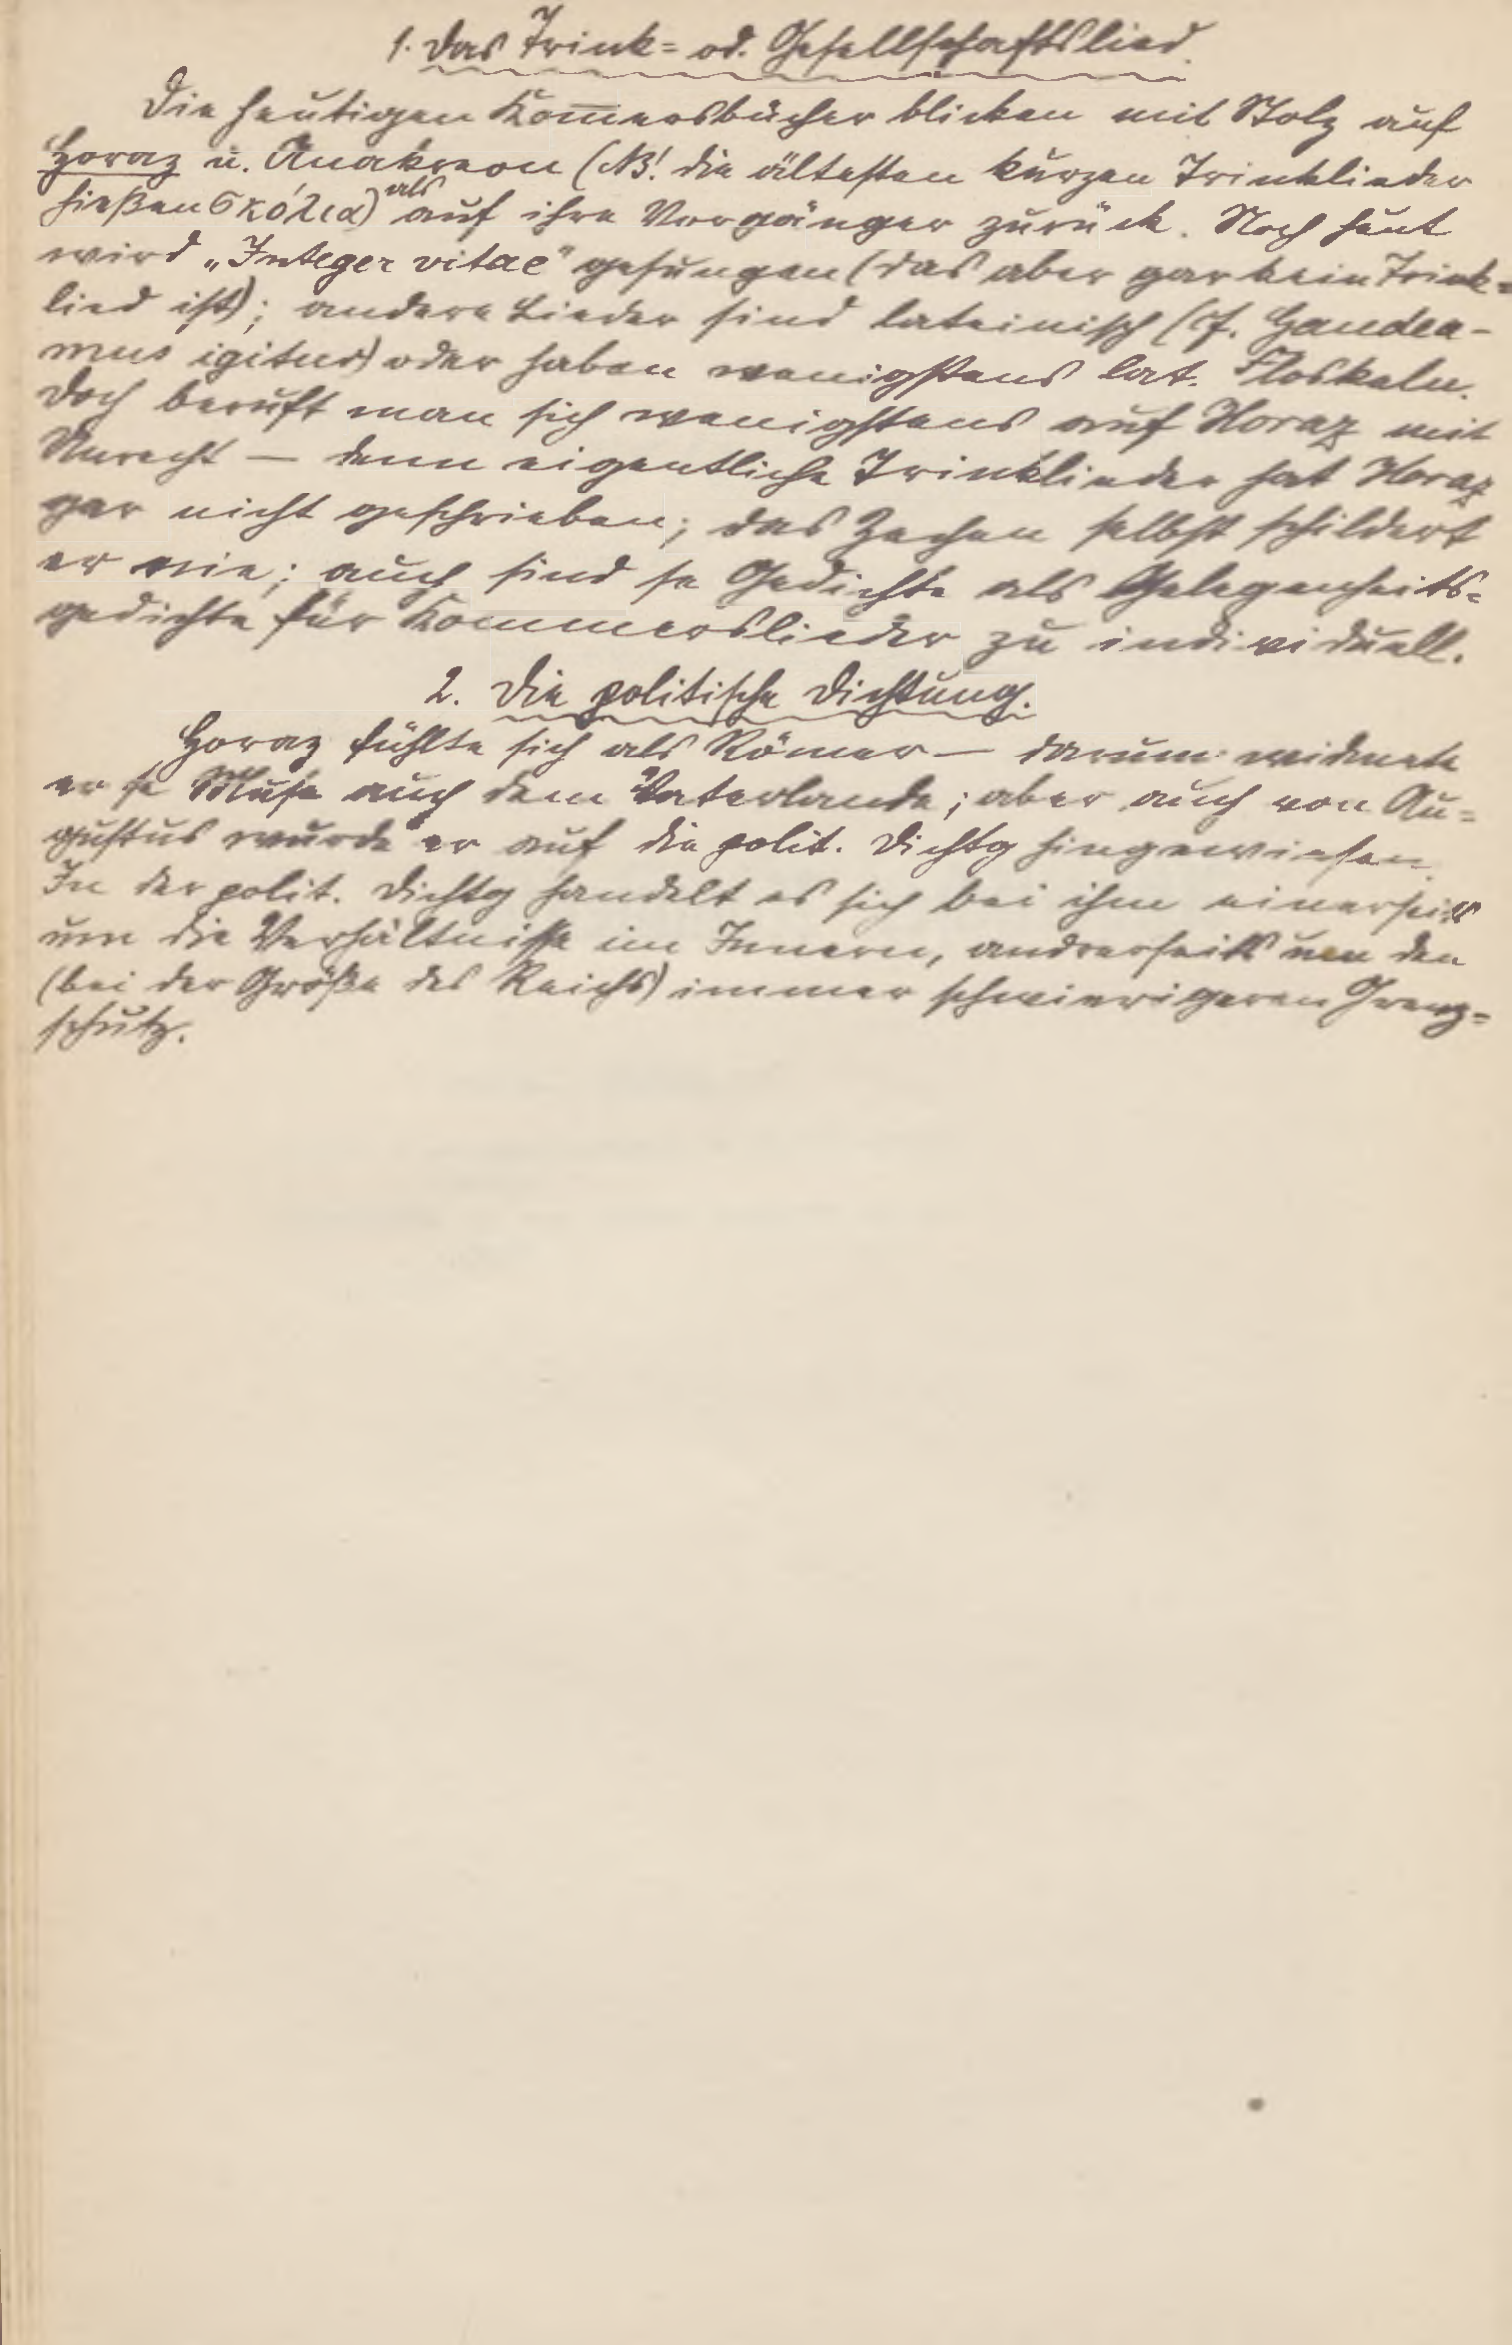 1. Das Trink= od. Gesellschaftslied.
Die heutigen Kom̅ersbücher blicken mit Stolz auf
Horaz u. Anakreon (NB! die ältesten kurzen Trinklieder
hießen σκόλια) als auf ihre Vorgänger zurück. Noch heut
wird „Integer vitae" gesungen (das aber gar kein Trink=
lied ist); andere Lieder sind lateinisch (cf. Gaudea-
mus igitur) oder haben wenigstens lat. Floskeln.
Doch beruft man sich wenigstens auf Horaz mit
Unrecht — denn eigentliche Trinklieder hat Horaz
gar nicht geschrieben; das Zechen selbst schildert
er nie; auch sind se Gedichte als Gelegenheits=
gedichte für Kommerslieder zu individuell.
2. Die politische Dichtung.
Horaz fühlte sich als Römer — darum widmete
er se Muse auch dem Vaterlande; aber auch von Au=
gustus wurde er auf die polit. Dichtg hingewiesen.
In der polit. Dichtg handelt es sich bei ihm einerseits
um die Verhältnisse im Innern, andrerseits um den
(bei der Größe des Reichs) immer schwierigeren Grenz=
schutz.